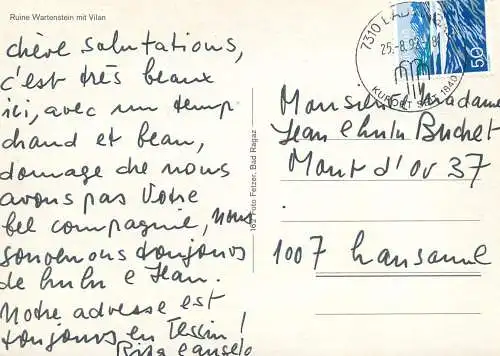 Ruine Wartenstein mit Vilan
chère salutations,
c'est très beaux
ici, avec un temp
chaud et beau,
domage che nous
avons pas Votre
bel compagnie, nous
souvenons toujours
de Lulu e Jean.
Notre adresse est
toujours en Tessin!
Rita e
162 Foto Feizer, Bad Ragaz
7310
25.-8.9
KURORT SEIT 1840
50
Monsieur Madame
Jean e Lulu Buchet
Mont d'or 37
1007 Lausanne